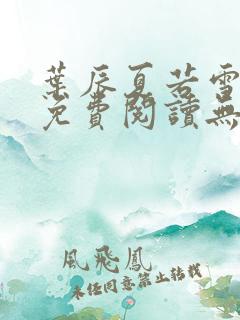 葉辰夏若雪
免費閱讀無
風飛鳳
未經同意禁止轉載